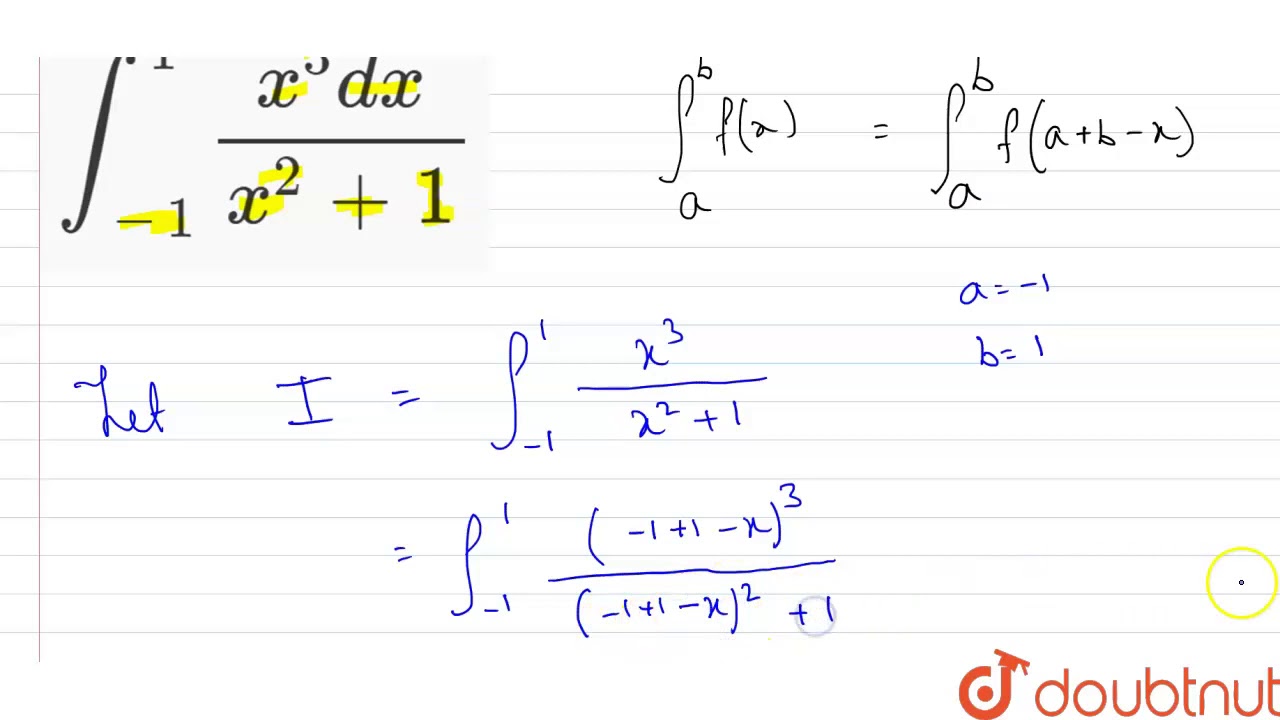 ∫_{-1}^{1} x³dx / (x² + 1)
∫_a^b f(x) = ∫_a^b f(a+b-x)
a = -1
b = 1
Let I = ∫_{-1}^{1} x³ / (x² + 1)
= ∫_{-1}^{1} (-1+1-x)³ / ((-1+1-x)² + 1)
doubtnut